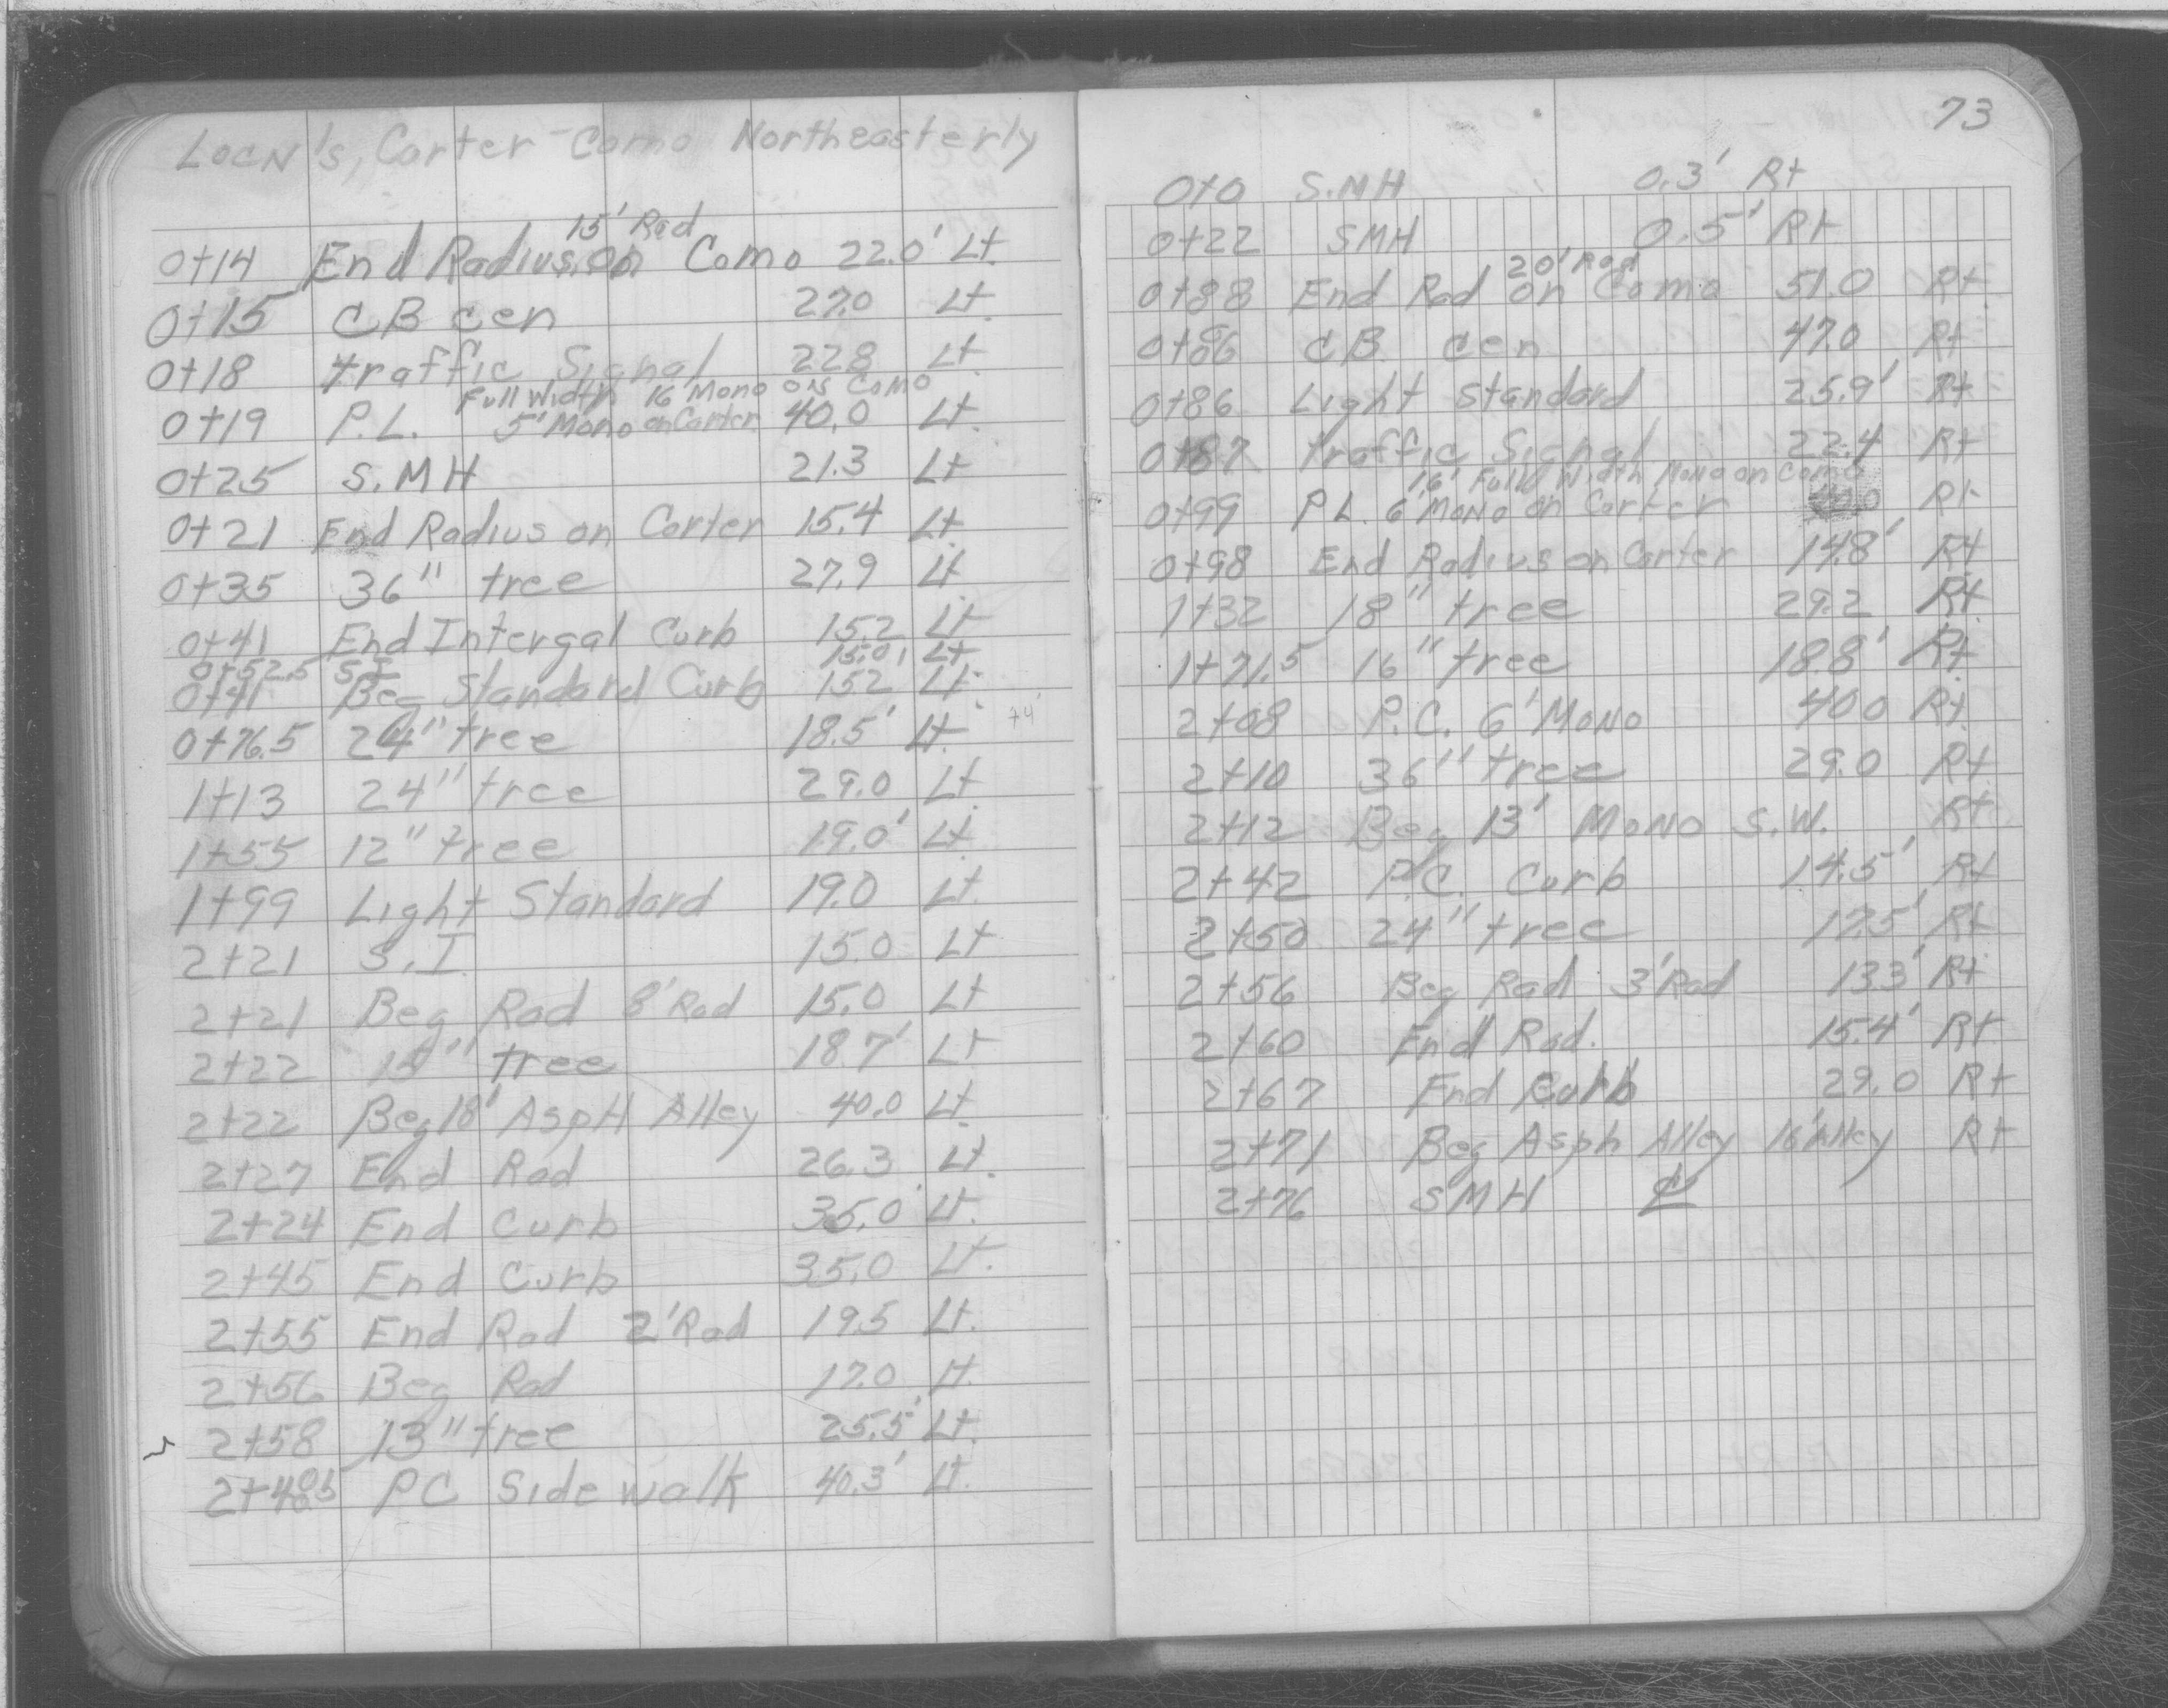 Locn's, Carter-Como Northeasterly
15' Rad
0+14 End Radius on Como 22.0' Lt.
0+15 CB cen 27.0 Lt.
0+18 traffic Signal 22.8 Lt.
Full Width 16 Mono on Como
0+19 P.L. 5' Mono on Carter 40.0 Lt.
0+25 S.MH 21.3 Lt
0+21 End Radius on Carter 15.4 Lt.
0+35 36" tree 27.9 Lt
0+41 End Intergal Curb 15.2 Lt
0+52.5 S I 15.0' Lt
0+41 Beg Standard Curb 15.2 Lt.
0+76.5 24" tree 18.5' Lt.
1+13 24" tree 29.0 Lt.
1+55 12" tree 19.0' Lt
1+99 Light Standard 19.0 Lt.
2+21 S.I. 15.0 Lt
2+21 Beg Rad 8' Rad 15.0 Lt
2+22 tree 18.7' Lt
2+22 Beg 18' Asph Alley 40.0 Lt.
2+27 End Rad 26.3 Lt.
2+24 End Curb 35.0 Lt.
2+45 End Curb 35.0 Lt.
2+55 End Rad 2' Rad 19.5 Lt.
2+56 Beg Rad 17.0 Lt.
2+58 13" tree 25.5' Lt.
PC Sidewalk 40.3' Lt.
73
0+0 S.MH 0.3' Rt
0+22 SMH 0.5' Rt
20' Rad
0+88 End Rad on Como 51.0 Rt
0+86 CB cen 47.0 Rt
0+86 Light Standard 25.9' Rt
0+87 traffic Signal 22.4 Rt
16' Full Width Mono on Como
0+99 P.L. 6' Mono on Carter Rt
0+98 End Radius on Carter 14.8' Rt
1+32 18" tree 29.2 Rt
1+71.5 16" tree 18.8' Rt
2+08 P.C. 6' Mono 40.0 Rt
2+10 36" tree 29.0 Rt
2+12 Beg 13' Mono S.W. Rt
2+42 P.C. Curb 14.5' Rt
2+50 24" tree 17.5' Rt
2+56 Beg Rad 3' Rad 13.3' Rt
2+60 End Rad. 15.4' Rt
2+67 End Curb 29.0 Rt
2+71 Beg Asph Alley 16' Alley Rt
2+76 SMH ℄